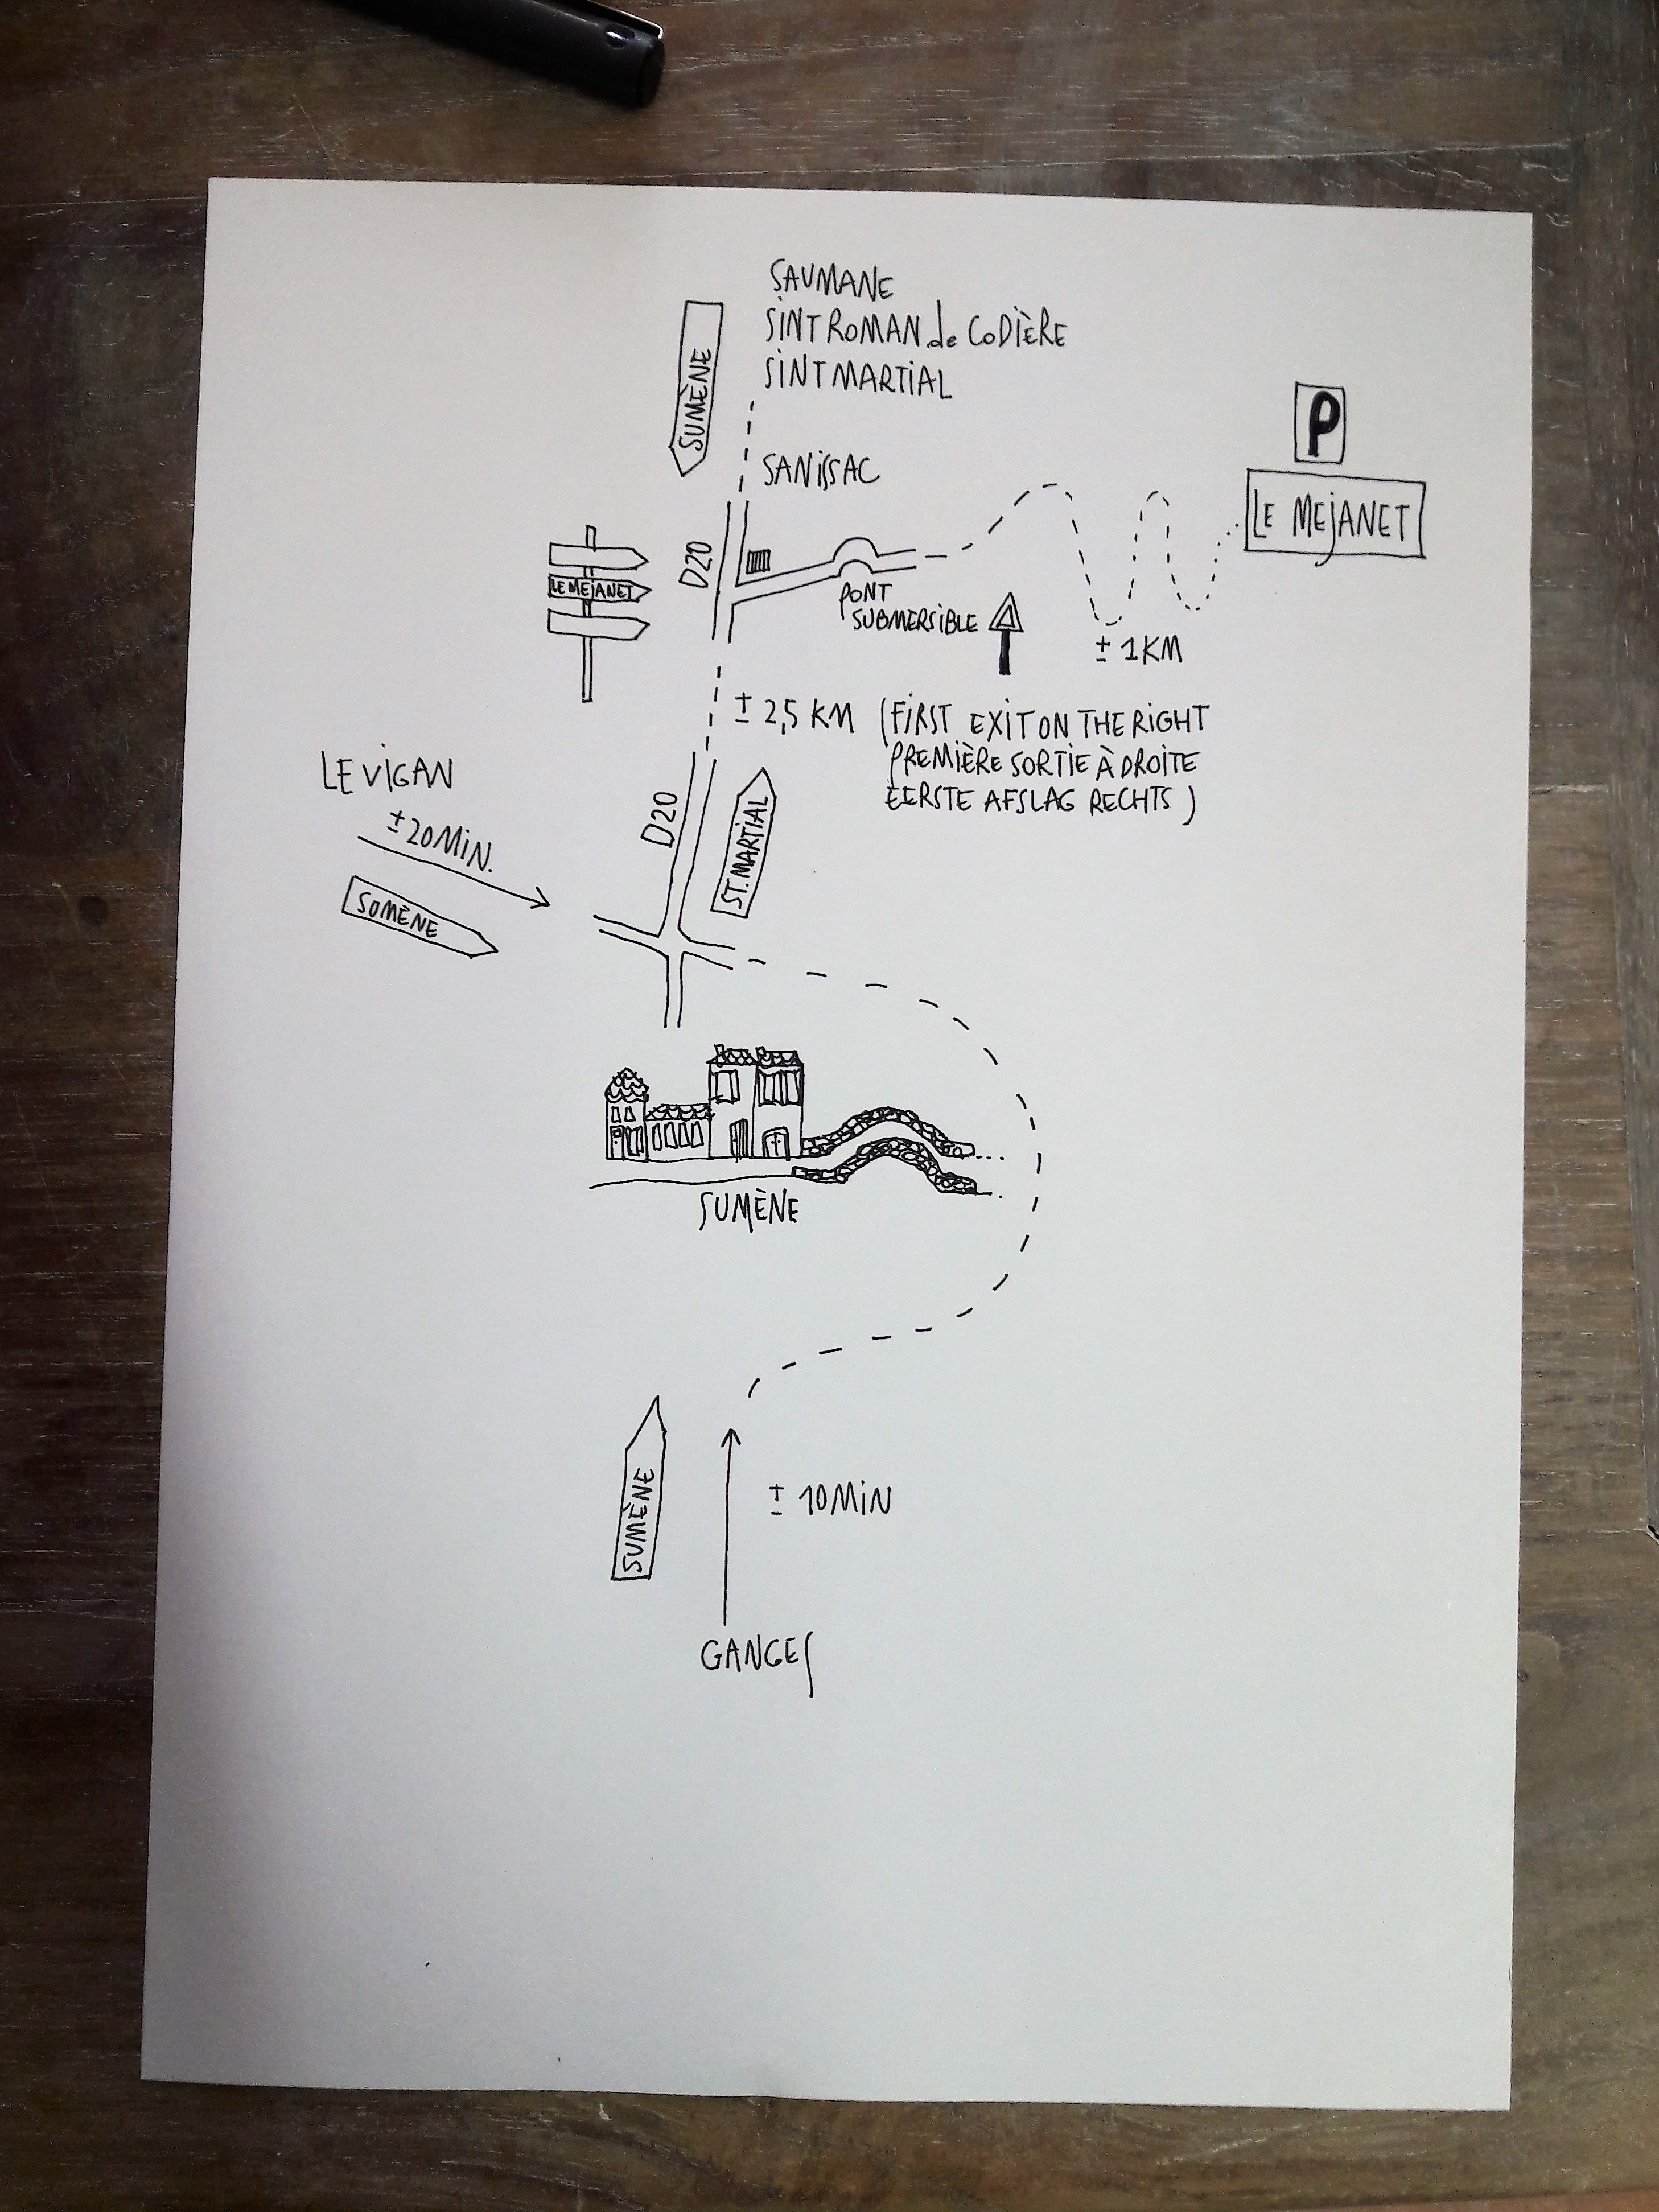 SAUMANE
SINT ROMAN de CODIÈRE
SINT MARTIAL
SUMÈNE
SANISSAC
P
LE MEJANET
D20
LE MEJANET
PONT
SUBMERSIBLE
± 1KM
± 2,5 KM (FIRST EXIT ON THE RIGHT
PREMIÈRE SORTIE À DROITE
EERSTE AFSLAG RECHTS)
LE VIGAN
± 20 MIN.
SOMÈNE
D20
ST. MARTIAL
SUMÈNE
SUMÈNE
± 10 MIN
GANGES